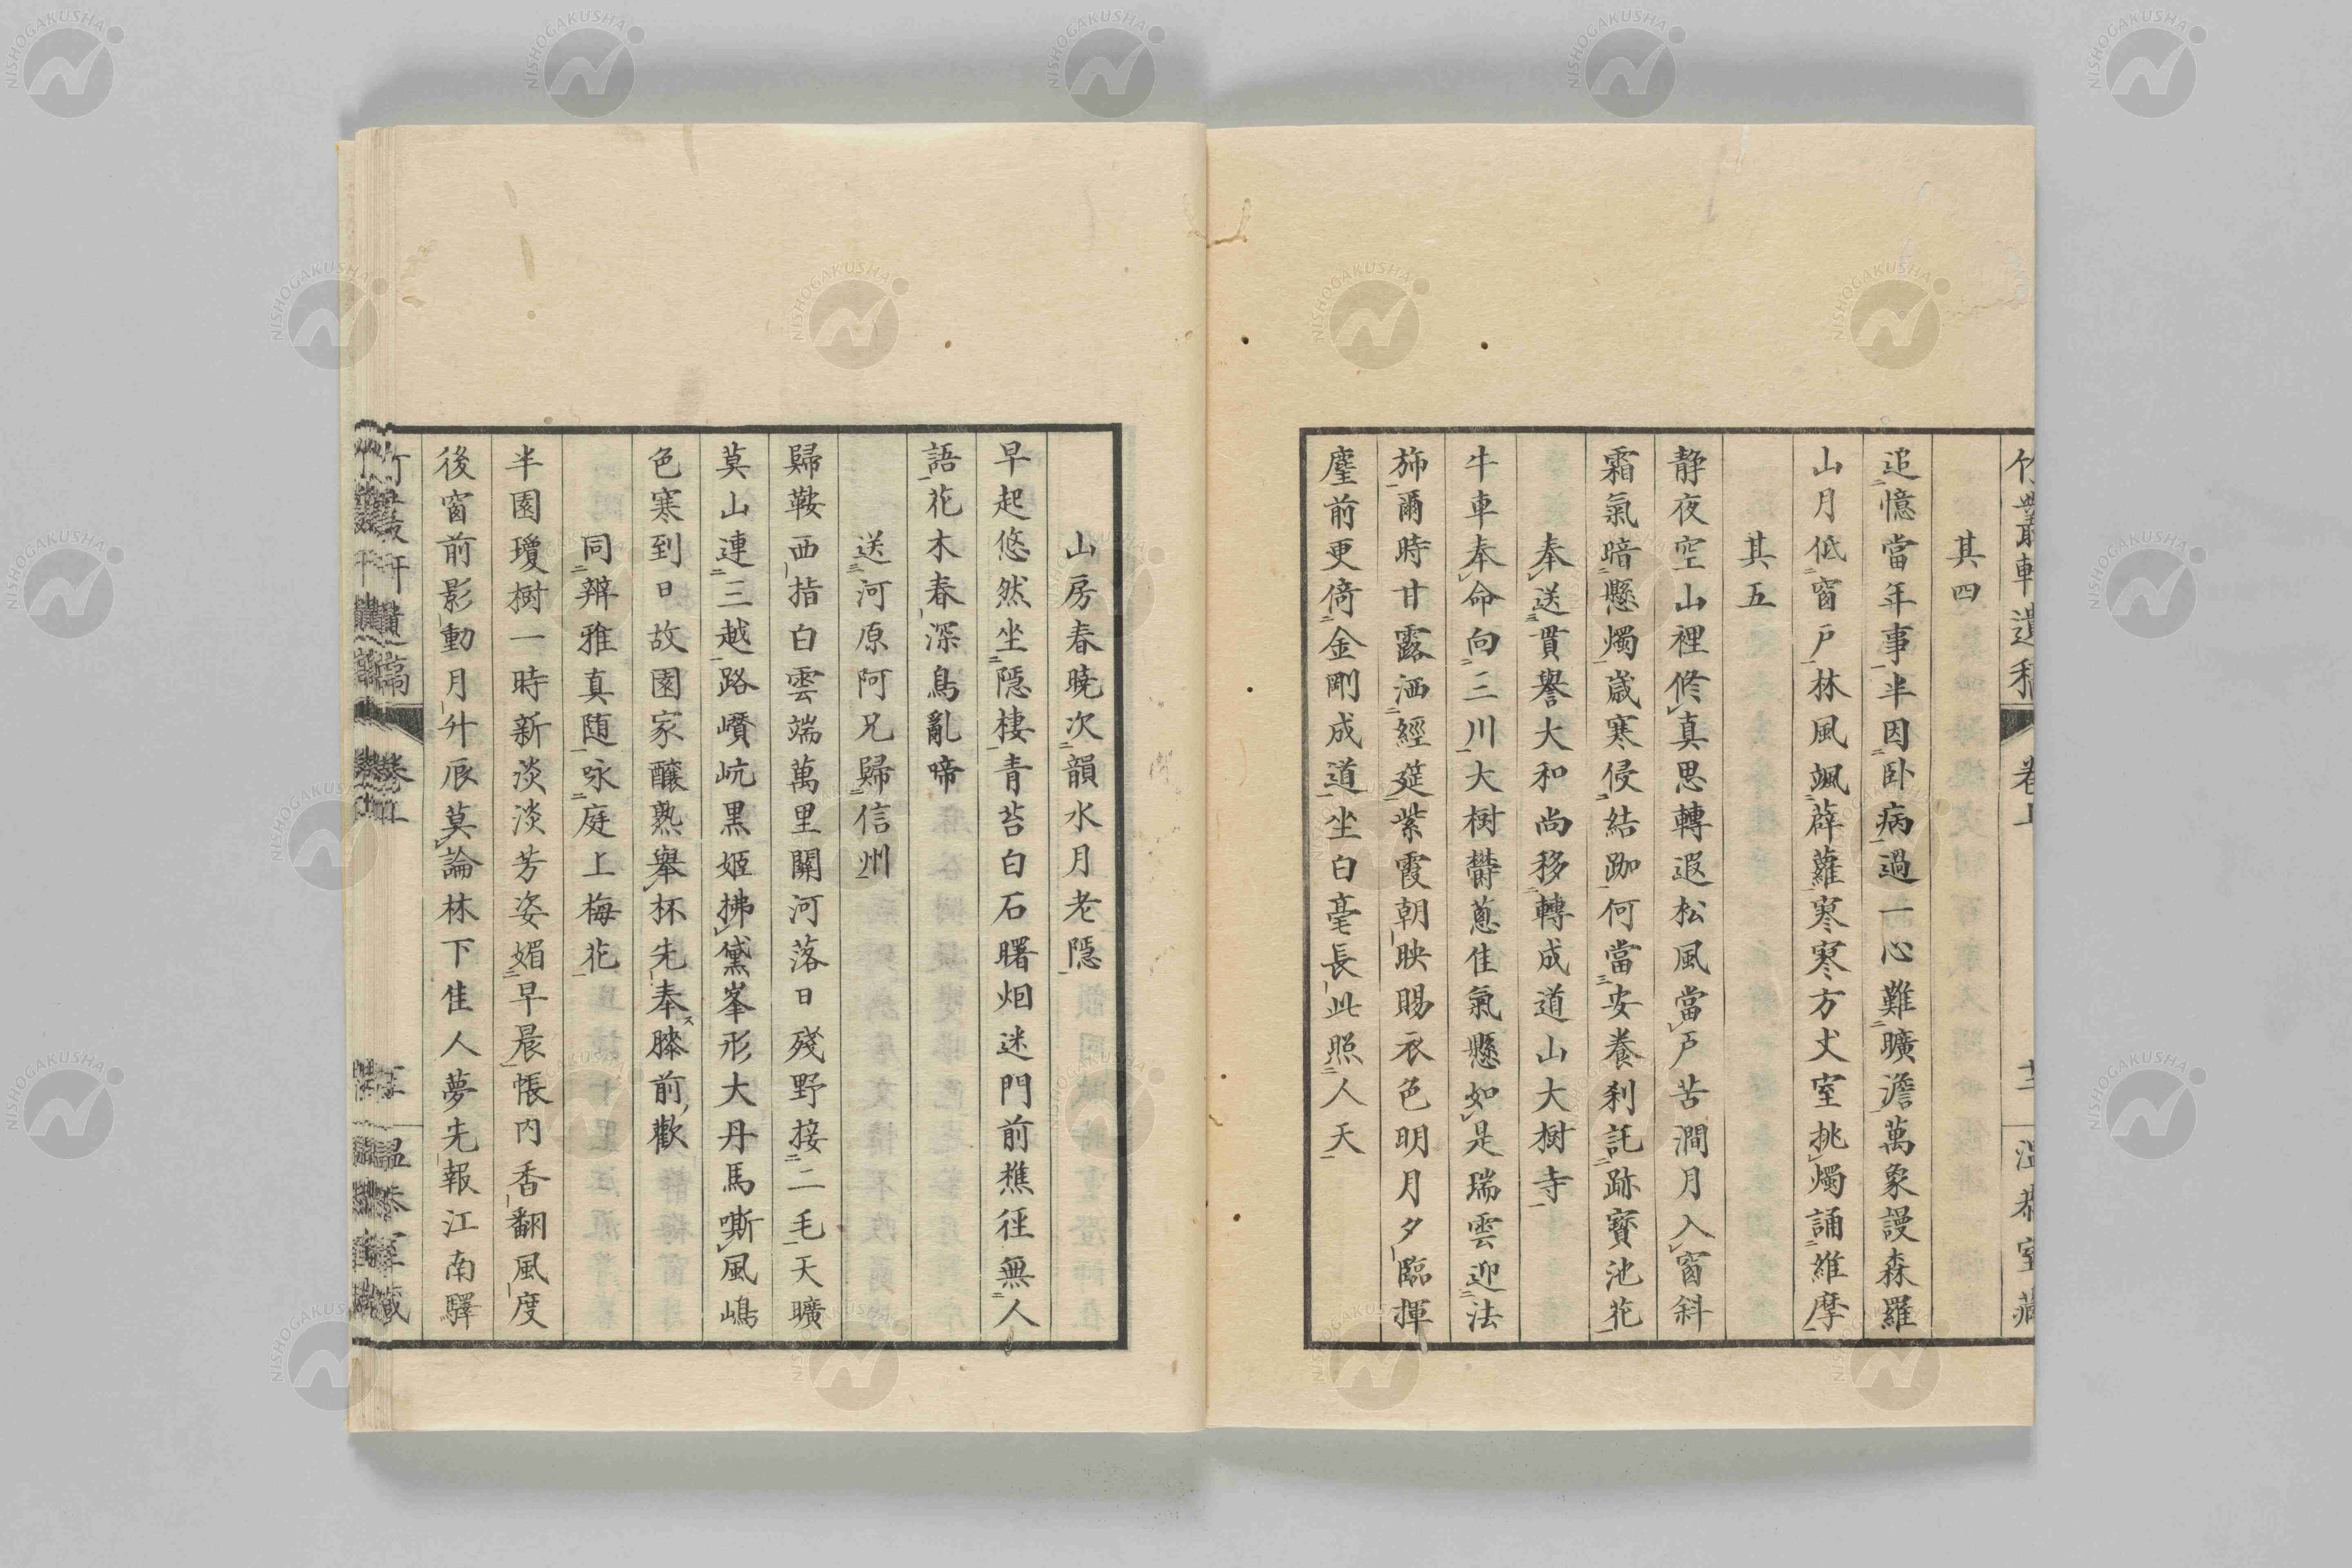 其四
追憶當年事半因卧病過一心難曠澹萬象謾森羅
山月低窗戶林風颯薜蘿寒寒方丈室挑燭誦維摩
其五
静夜空山裡修真思轉遐松風當戶苦澗月入窗斜
霜氣暗懸燭歳寒侵結跏何當安養刹託跡寳池花
奉送貫譽大和尚移轉成道山大樹寺
牛車奉命向三川大樹欝蔥佳氣懸如是瑞雲迎法
斾爾時甘露洒經筵紫霞朝映賜衣色明月夕臨揮
麈前更倚金剛成道坐白毫長此照人天
山房春曉次韻水月老隱
早起悠然坐隱棲青苔白石曙烟迷門前樵徑無人
語花木春深鳥亂啼
送河原阿兄歸信州
歸鞍西指白雲端萬里關河落日殘野接二毛天曠
莫山連三越路巑岏黒姬拂黛峯形大丹馬嘶風嶋
色寒到日故園家釀熟舉杯先奉膝前歡
同辨雅真随咏庭上梅花
半園瓊樹一時新淡淡芳姿媚早晨帳内香翻風度
後窗前影動月升辰莫論林下佳人夢先報江南驛
NISHOGAKUSHA